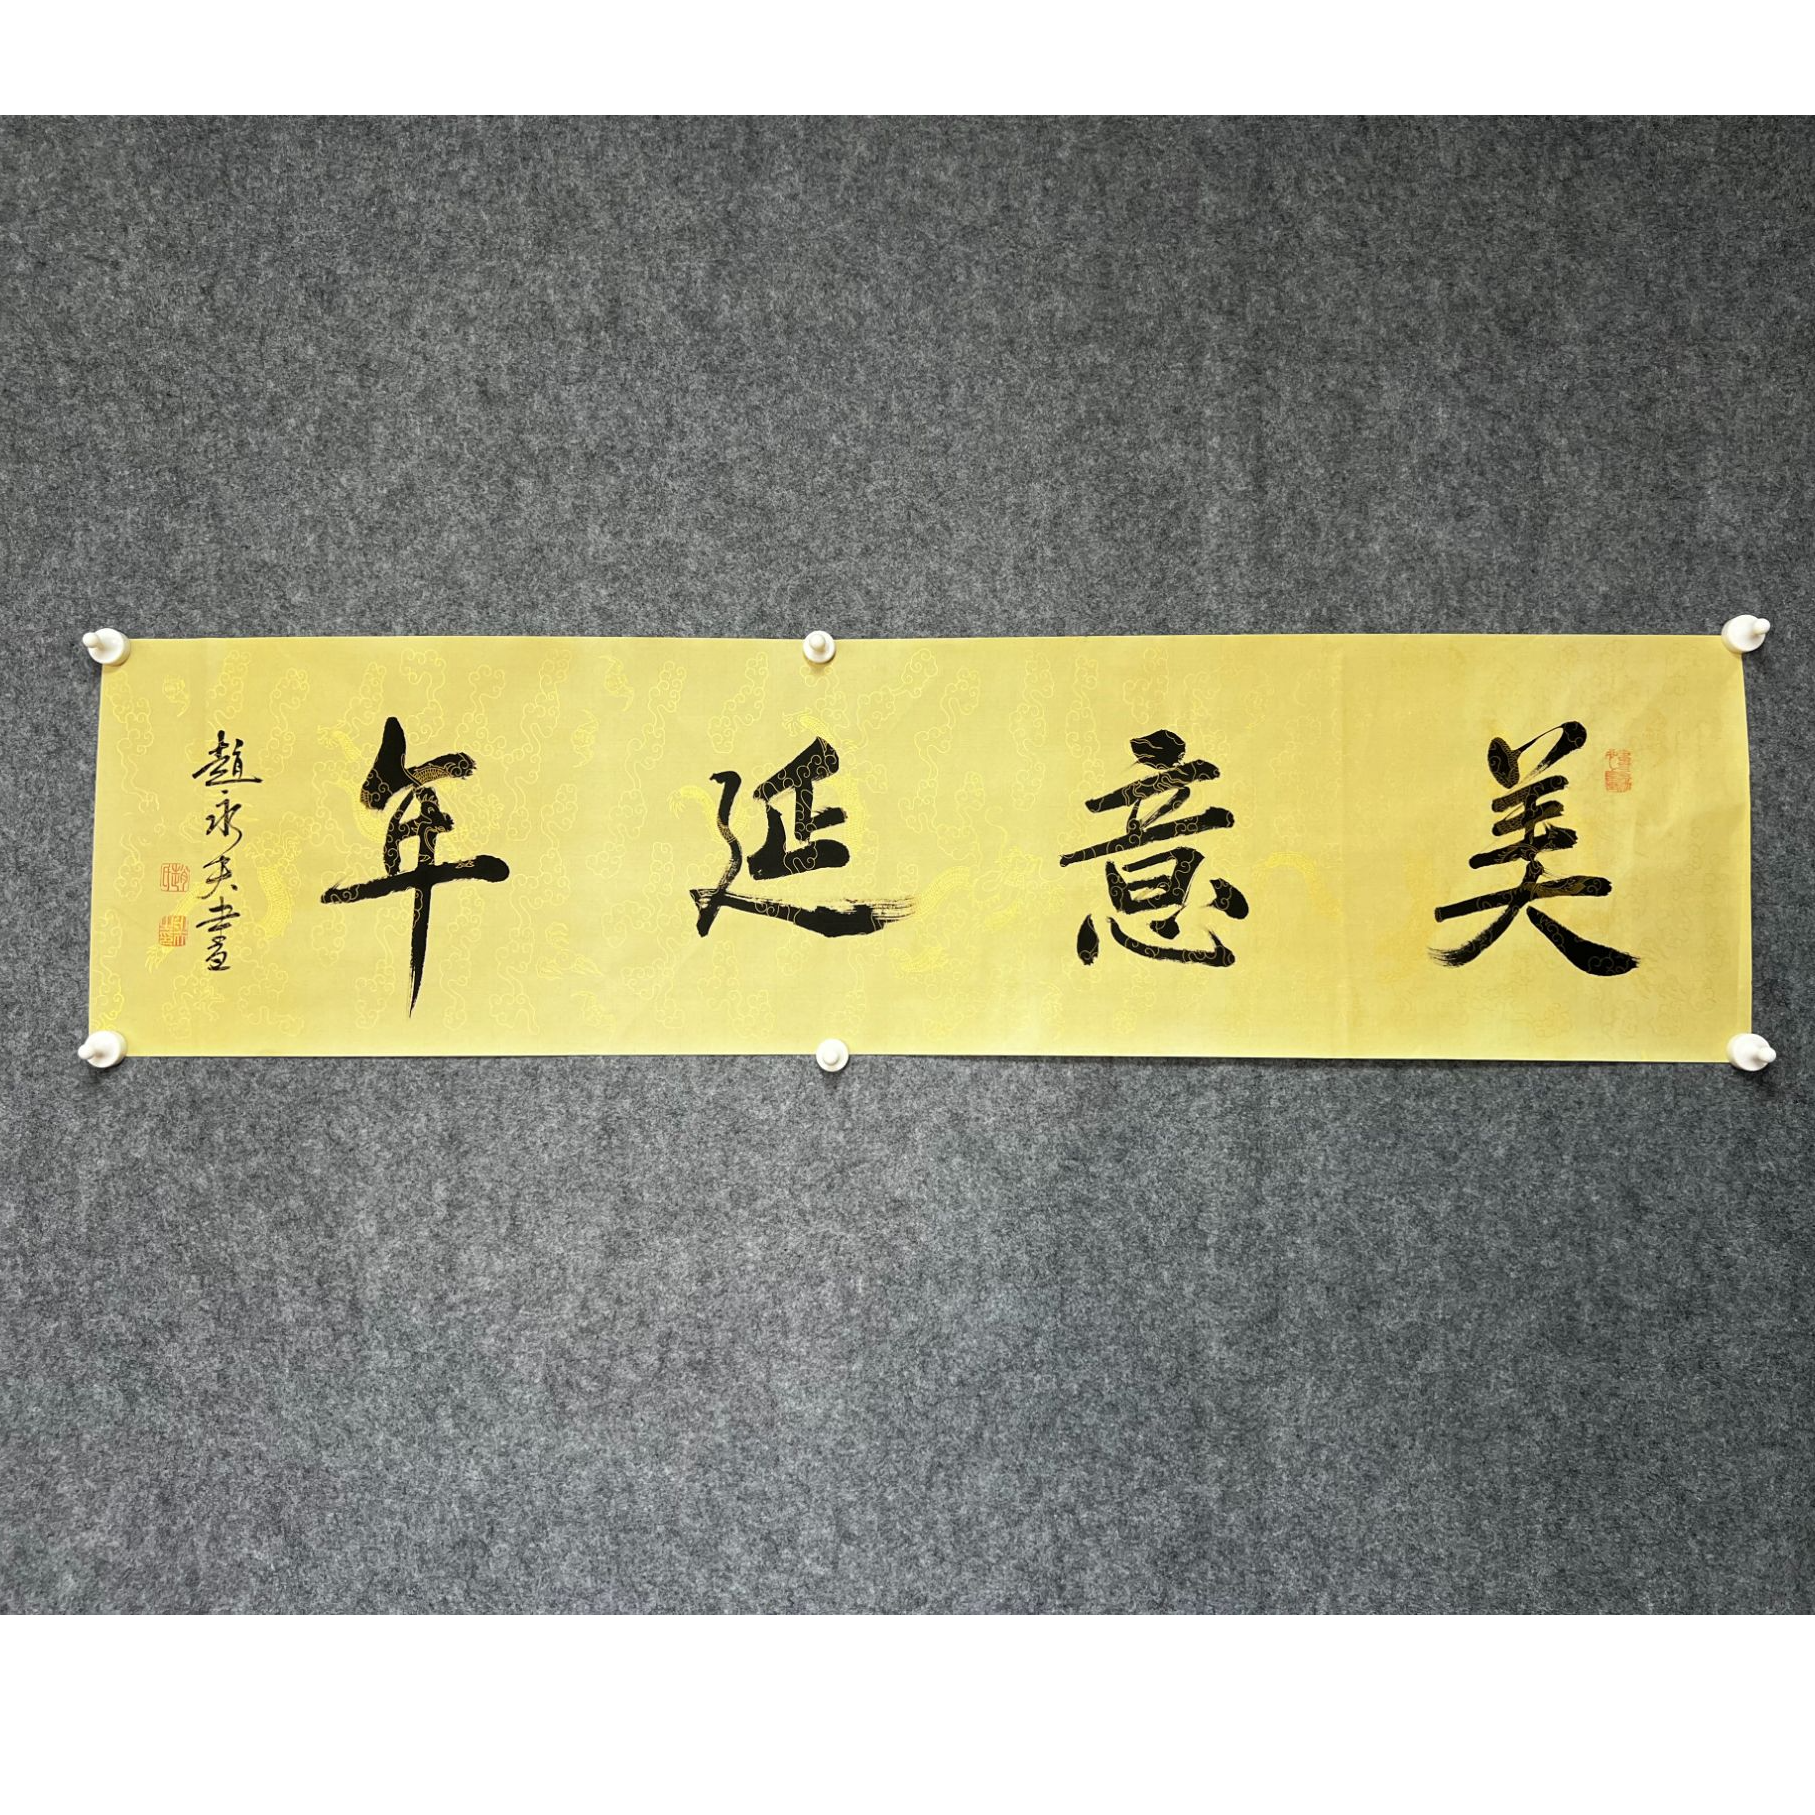 美意延年
趙永夫書